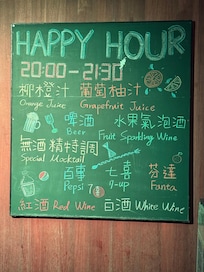 HAPPY HOUR
20:00-21:30
柳橙汁 葡萄柚汁
Orange Juice Grapefruit Juice
啤酒 水果氣泡酒
Beer Fruit Sparkling Wine
無酒精特調
Special Mocktail
百事 七喜 芬達
Pepsi 7-up Fanta
紅酒 Red Wine 白酒 White Wine